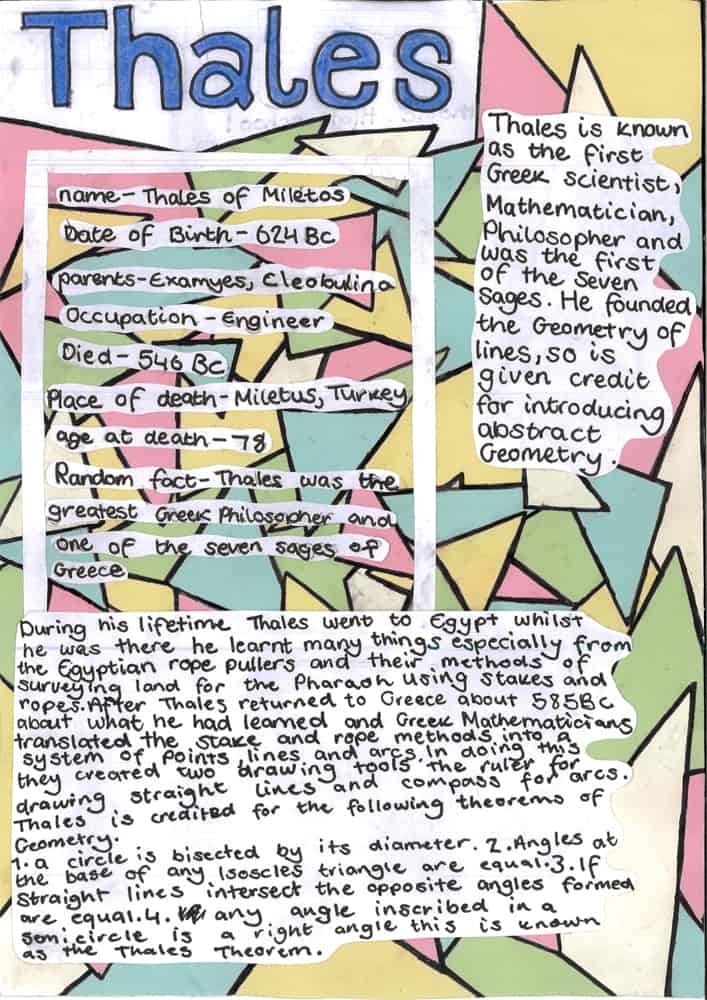 Thales
name- Thales of Miletos
Date of Birth - 624 Bc
parents-Examyes, Cleobulina
Occupation - Engineer
Died - 546 Bc
Place of death-Miletus, Turkey
age at death - 78
Random fact- Thales was the
greatest Greek Philosopher and
one of the seven sages of
Greece
Thales is known
as the first
Greek scientist,
Mathematician,
Philosopher and
was the first
of the seven
sages. He founded
the Geometry of
lines, so is
given credit
for introducing
abstract
Geometry.
During his lifetime Thales went to Egypt whilst
he was there he learnt many things especially from
the Egyptian rope pullers and their methods of
surveying land for the Pharaoh using stakes and
ropes. After Thales returned to Greece about 585Bc
about what he had learned and Greek Mathematicians
translated the stake and rope methods into a
system of points, lines and arcs. In doing this
they created two drawing tools the ruler for
drawing straight lines and compass for arcs.
Thales is credited for the following theorems of
Geometry.
1. a circle is bisected by its diameter. 2. Angles at
the base of any Isoscles triangle are equal. 3. If
straight lines intersect the opposite angles formed
are equal. 4. any angle inscribed in a
semicircle is a right angle this is known
as the Thales Theorem.